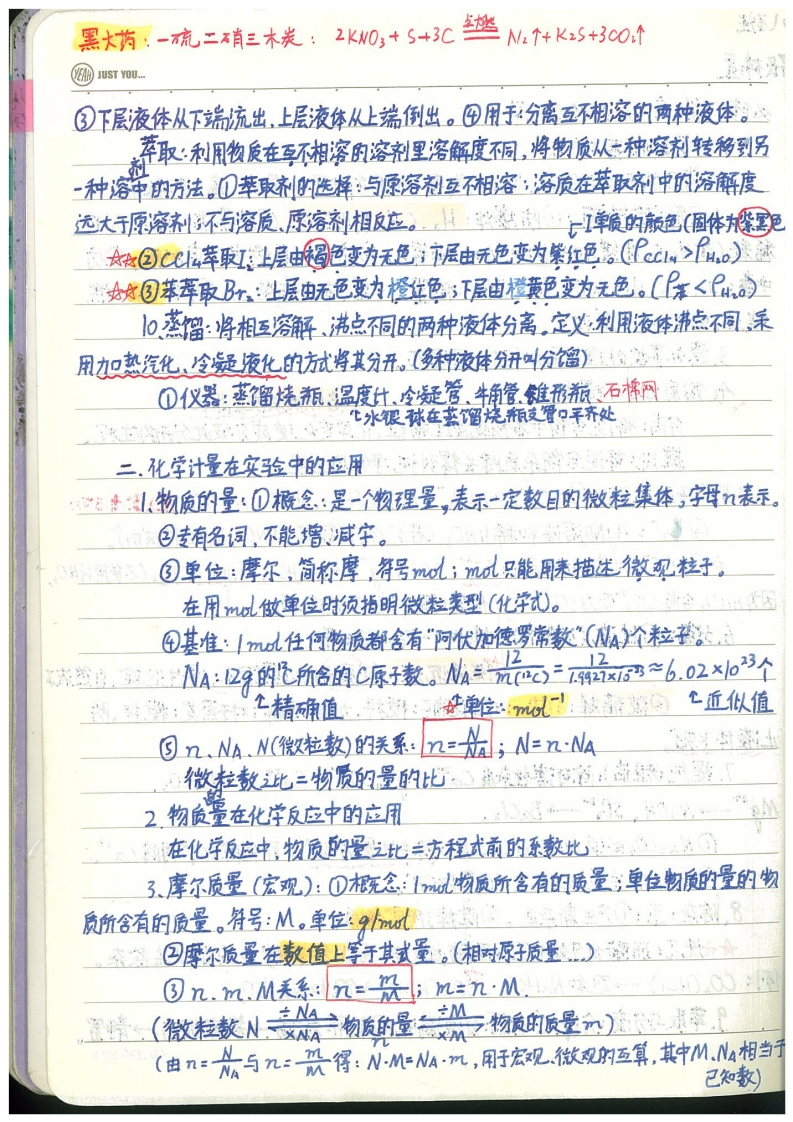 黑火药：一硫二硝三木炭： 2KNO₃+S+3C 点燃 N₂↑+K₂S+3CO₂↑
YEAH JUST YOU...
③下层液体从下端流出，上层液体从上端倒出。④用于：分离互不相溶的两种液体。
萃取：利用物质在互不相溶的溶剂里溶解度不同，将物质从一种溶剂转移到另
一种溶剂中的方法。①萃取剂的选择：与原溶剂互不相溶；溶质在萃取剂中的溶解度
远大于原溶剂；不与溶质、原溶剂相反应。
I单质的颜色(固体为紫黑色
☆☆②CCl₄萃取I₂：上层由褐色变为无色；下层由无色变为紫红色。(ρCCl₄>ρH₂O)
☆☆③苯萃取Br₂：上层由无色变为橙红色；下层由橙黄色变为无色。(ρ苯<ρH₂O)
10、蒸馏：将相互溶解、沸点不同的两种液体分离。定义：利用液体沸点不同、采
用加热汽化、冷凝液化的方式将其分开。(多种液体分开叫分馏)
①仪器：蒸馏烧瓶、温度计、冷凝管、牛角管、锥形瓶、石棉网
↑水银球在蒸馏烧瓶支管口平齐处
二、化学计量在实验中的应用
1、物质的量：①概念：是一个物理量，表示一定数目的微粒集体，字母n表示。
②专有名词，不能增、减字。
③单位：摩尔，简称摩，符号mol；mol只能用来描述微观粒子。
在用mol做单位时须指明微粒类型(化学式)。
④基准：1mol任何物质都含有“阿伏加德罗常数”(NA)个粒子。
NA：12g的¹²C所含的C原子数。NA=12/m(¹²C)=12/1.9927×10⁻²³≈6.02×10²³个
↑精确值 ☆单位：mol⁻¹ ↑近似值
⑤n、NA、N(微粒数)的关系：n=N/NA；N=n·NA
微粒数之比=物质的量的比
2、物质的量在化学反应中的应用
在化学反应中，物质的量之比=方程式前的系数比
3、摩尔质量(宏观)：①概念：1mol物质所含有的质量；单位物质的量的物
质所含有的质量。符号：M。单位：g/mol
②摩尔质量在数值上等于其式量。(相对原子质量…)
③n、m、M关系：n=m/M；m=n·M.
(微粒数N ÷NA ×NA 物质的量n ÷M ×M 物质的质量m)
(由n=N/NA与n=m/M得：N·M=NA·m，用于宏观、微观的互算，其中M、NA相当于
已知数)